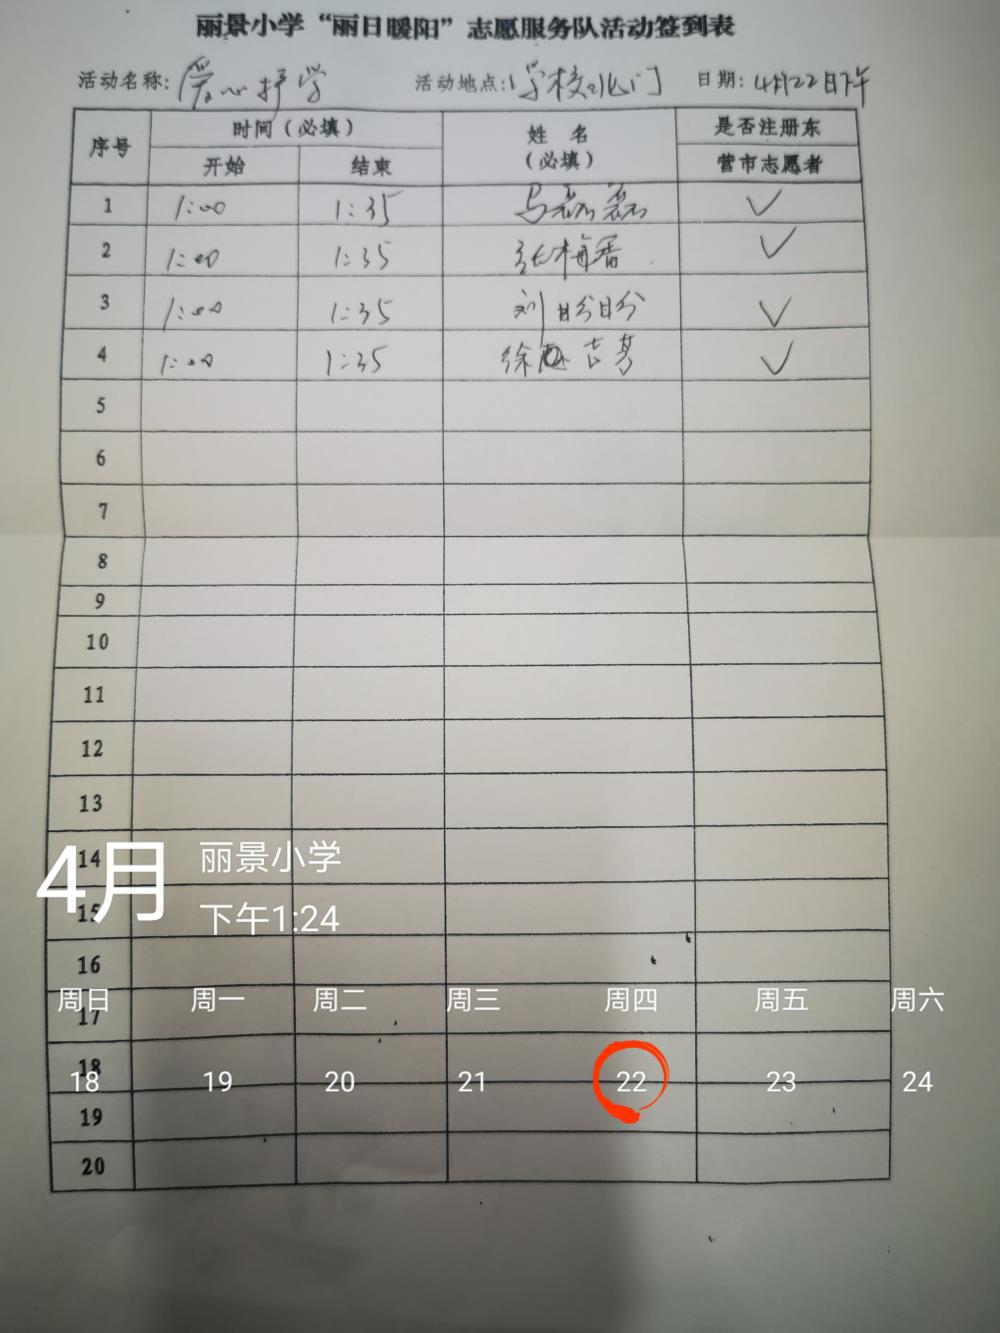 丽景小学“丽日暖阳”志愿服务队活动签到表
活动名称:爱心护学 活动地点:学校北门 日期:4月22日下午
序号 时间(必填) 姓 名(必填) 是否注册东营市志愿者
开始 结束
1 1:00 1:35 马磊磊 ✓
2 1:00 1:35 张梅香 ✓
3 1:00 1:35 刘盼盼 ✓
4 1:00 1:35 徐吉芳 ✓
5
6
7
8
9
10
11
12
13
14
15
16
17
18
19
20
4月 丽景小学
下午1:24
周日 周一 周二 周三 周四 周五 周六
18 19 20 21 22 23 24